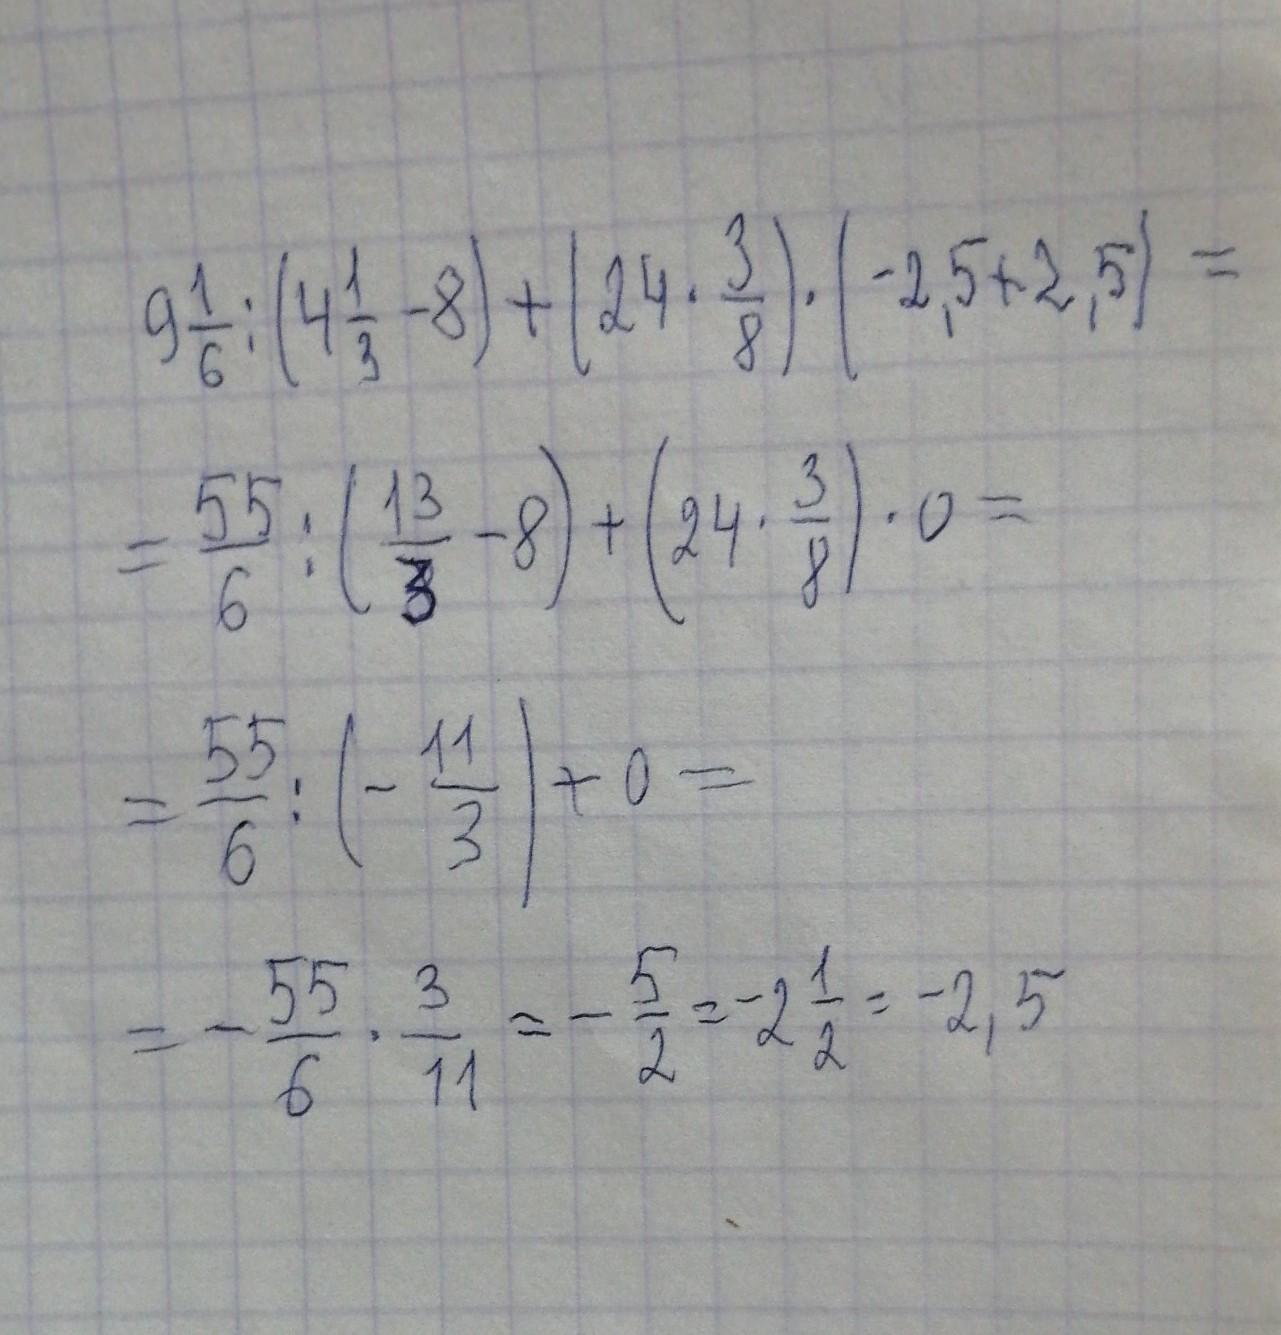 9 1/6 : (4 1/3 - 8) + (24 · 3/8) · (-2,5 + 2,5) =
= 55/6 : (13/3 - 8) + (24 · 3/8) · 0 =
= 55/6 : (- 11/3) + 0 =
= - 55/6 · 3/11 = - 5/2 = -2 1/2 = -2,5